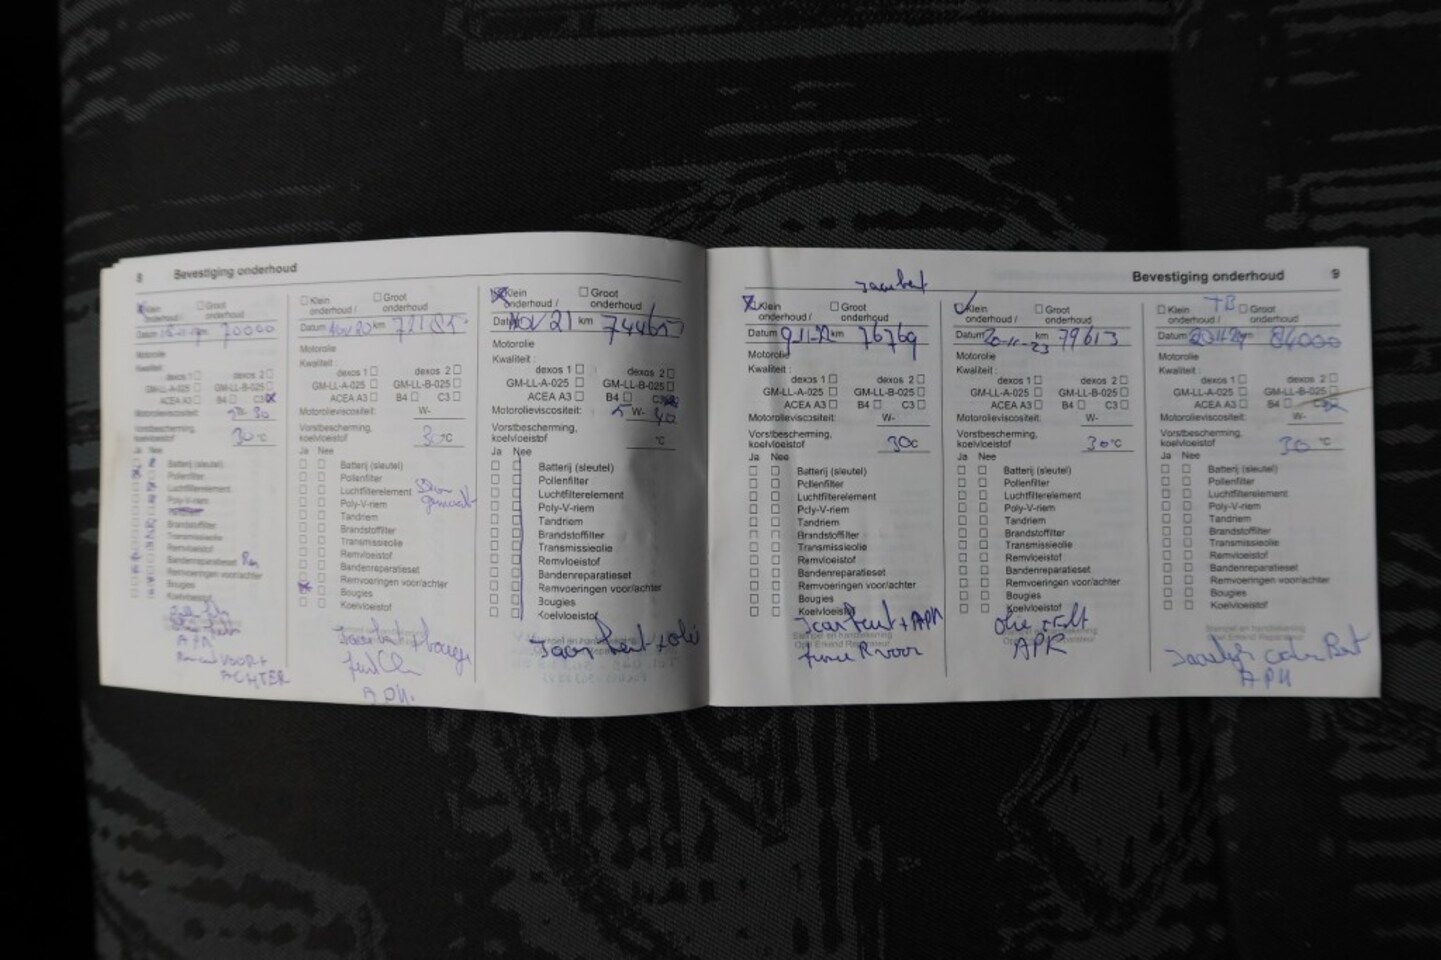 8 Bevestiging onderhoud
Klein onderhoud / Groot onderhoud
Datum km 70000
Motorolie
Kwaliteit :
dexos 1 dexos 2
GM-LL-A-025 GM-LL-B-025
ACEA A3 B4 C3
Motorolieviscositeit: 30
Vorstbescherming, koelvloeistof 30 °C
Ja Nee
Batterij (sleutel)
Pollenfilter
Luchtfilterelement
Poly-V-riem
Brandstoffilter
Transmissieolie
Remvloeistof
Bandenreparatieset
Remvoeringen voor/achter
Bougies
Koelvloeistof
VOOR +
ACHTER
Klein onderhoud / Groot onderhoud
Datum Nov 20 km
Motorolie
Kwaliteit :
dexos 1 dexos 2
GM-LL-A-025 GM-LL-B-025
ACEA A3 B4 C3
Motorolieviscositeit: W-
Vorstbescherming, koelvloeistof 30 °C
Ja Nee
Batterij (sleutel)
Pollenfilter
Luchtfilterelement
Poly-V-riem
Tandriem
Brandstoffilter
Transmissieolie
Remvloeistof
Bandenreparatieset
Remvoeringen voor/achter
Bougies
Koelvloeistof
Klein onderhoud / Groot onderhoud
Datum Nov 21 km 74465
Motorolie
Kwaliteit :
dexos 1 dexos 2
GM-LL-A-025 GM-LL-B-025
ACEA A3 B4 C3
Motorolieviscositeit: 5 W- 40
Vorstbescherming, koelvloeistof °C
Ja Nee
Batterij (sleutel)
Pollenfilter
Luchtfilterelement
Poly-V-riem
Tandriem
Brandstoffilter
Transmissieolie
Remvloeistof
Bandenreparatieset
Remvoeringen voor/achter
Bougies
Koelvloeistof
Bevestiging onderhoud 9
Klein onderhoud / Groot onderhoud
Datum 9-11-22 km 76769
Motorolie
Kwaliteit :
dexos 1 dexos 2
GM-LL-A-025 GM-LL-B-025
ACEA A3 B4 C3
Motorolieviscositeit: W-
Vorstbescherming, koelvloeistof 30 °C
Ja Nee
Batterij (sleutel)
Pollenfilter
Luchtfilterelement
Poly-V-riem
Tandriem
Brandstoffilter
Transmissieolie
Remvloeistof
Bandenreparatieset
Remvoeringen voor/achter
Bougies
Koelvloeistof
Stempel en handtekening
Opel Erkend Reparateur
Klein onderhoud / Groot onderhoud
Datum 20-11-23 km 79613
Motorolie
Kwaliteit :
dexos 1 dexos 2
GM-LL-A-025 GM-LL-B-025
ACEA A3 B4 C3
Motorolieviscositeit: W-
Vorstbescherming, koelvloeistof 30 °C
Ja Nee
Batterij (sleutel)
Pollenfilter
Luchtfilterelement
Poly-V-riem
Tandriem
Brandstoffilter
Transmissieolie
Remvloeistof
Bandenreparatieset
Remvoeringen voor/achter
Bougies
Koelvloeistof
APK
TB
Klein onderhoud / Groot onderhoud
Datum km 84000
Motorolie
Kwaliteit :
dexos 1 dexos 2
GM-LL-A-025 GM-LL-B-025
ACEA A3 B4
Motorolieviscositeit: W-
Vorstbescherming, koelvloeistof 30 °C
Ja Nee
Batterij (sleutel)
Pollenfilter
Luchtfilterelement
Poly-V-riem
Tandriem
Brandstoffilter
Transmissieolie
Remvloeistof
Bandenreparatieset
Remvoeringen voor/achter
Bougies
Koelvloeistof
Stempel en handtekening
Opel Erkend Reparateur